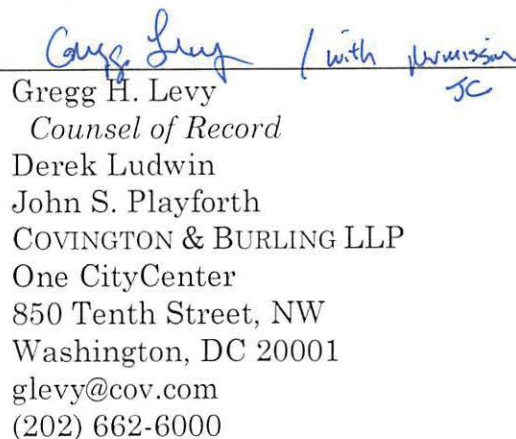 Gregg Levy / with permission
JC
Gregg H. Levy
Counsel of Record
Derek Ludwin
John S. Playforth
COVINGTON & BURLING LLP
One CityCenter
850 Tenth Street, NW
Washington, DC 20001
glevy@cov.com
(202) 662-6000